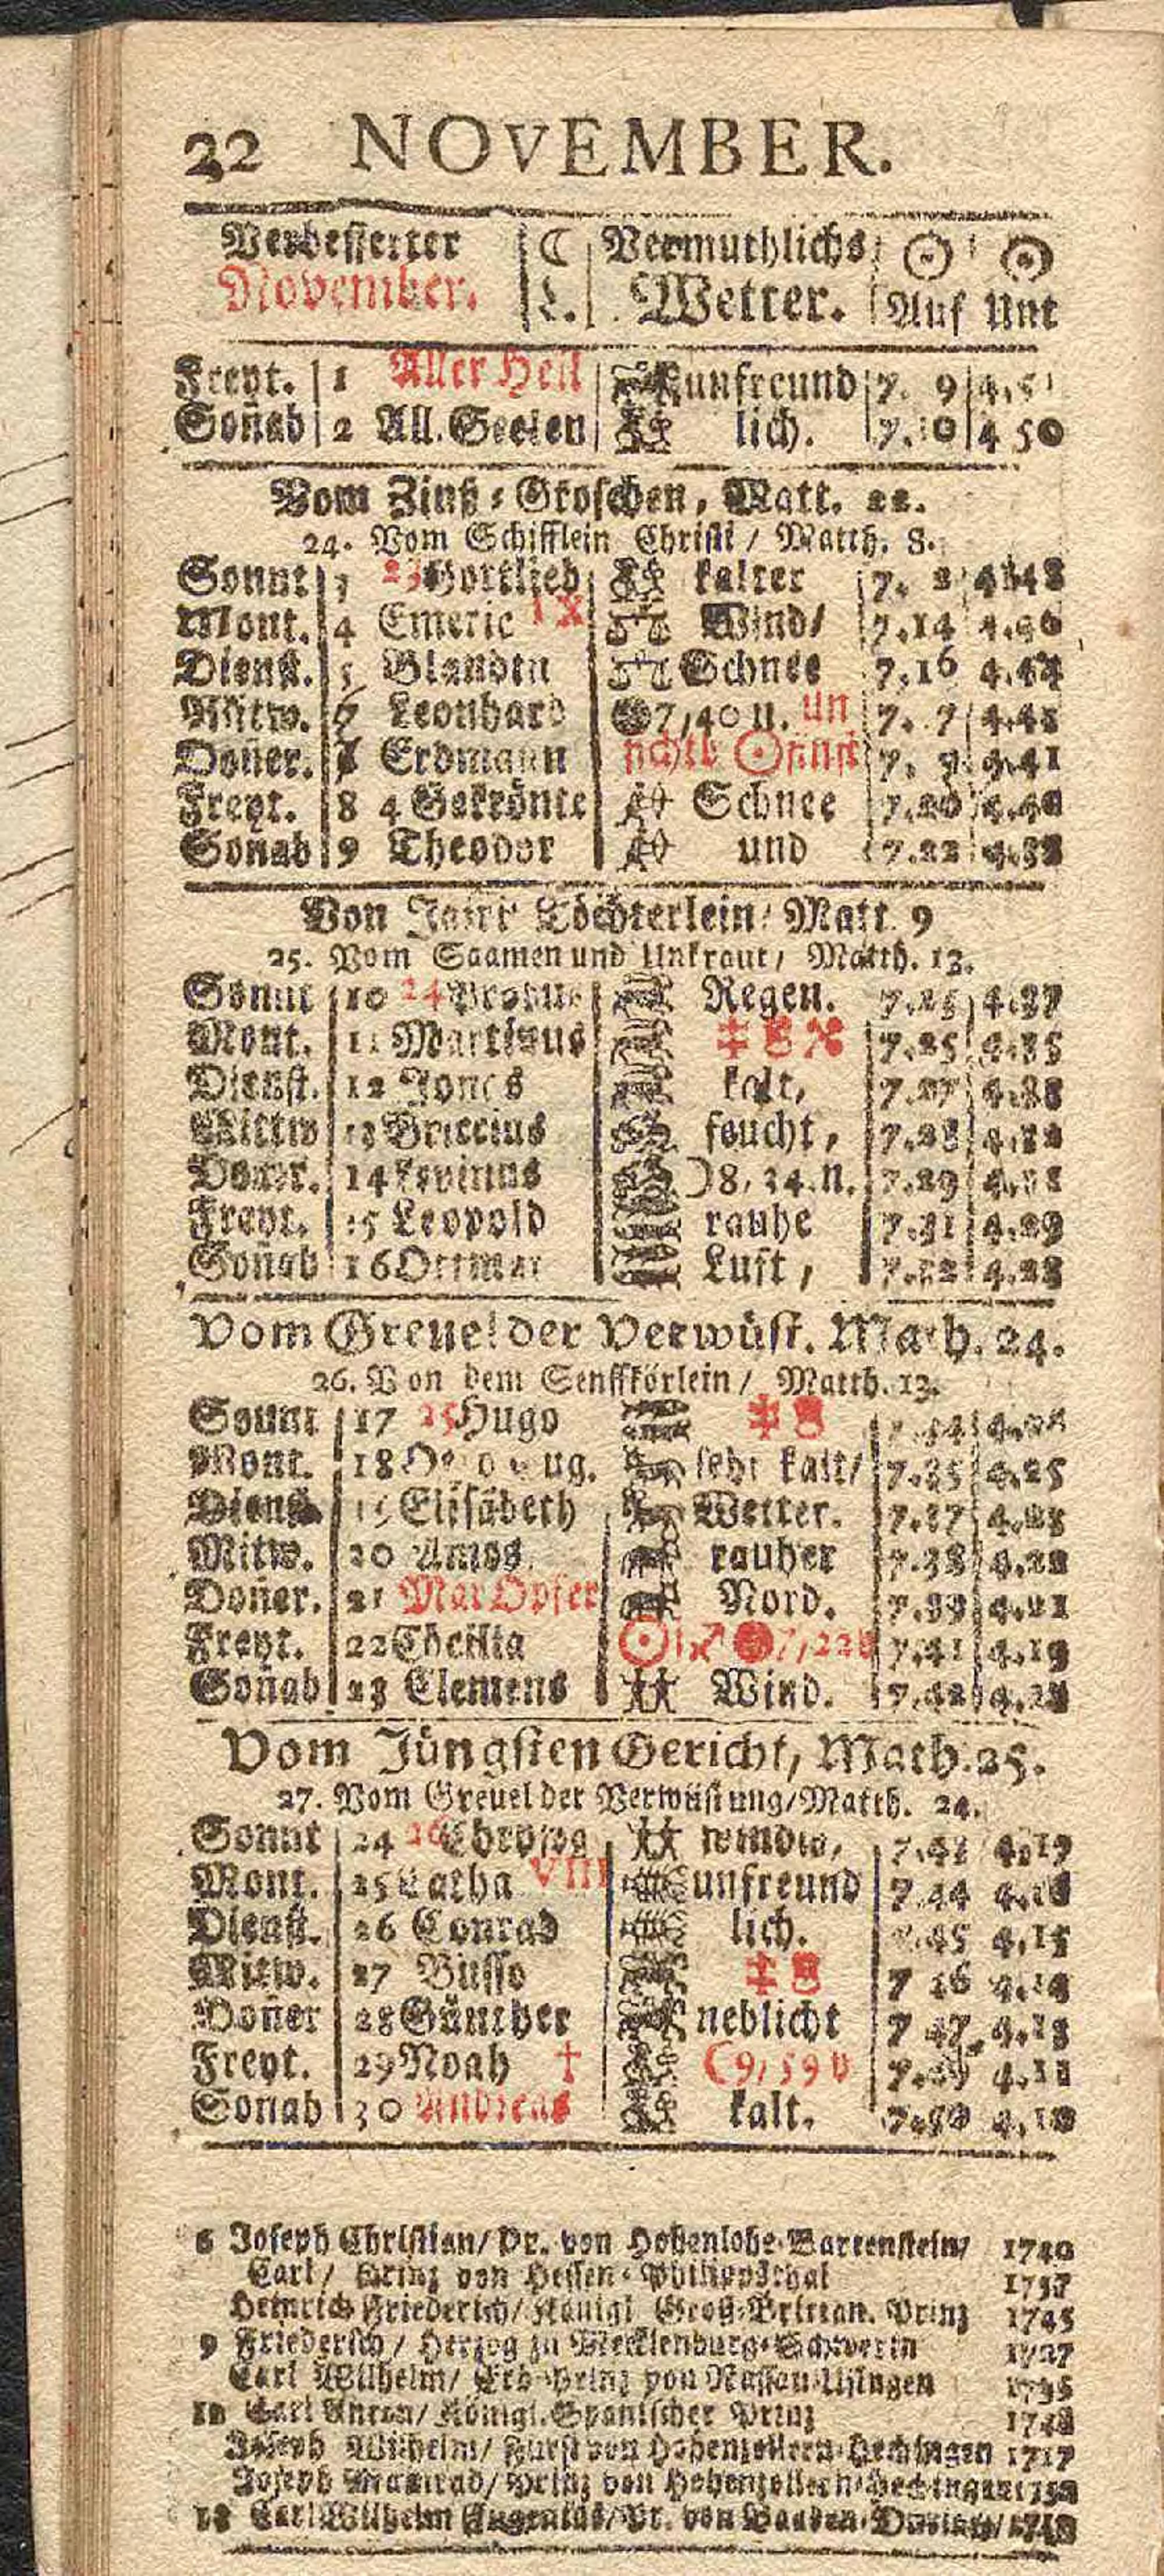 22 NOVEMBER.
Verbesserter ☾ Vermuthlichs ☉ ☉
November. L. Wetter. Auf Unt
Freyt. 1 Aller Heil unfreund 7. 9 4.51
Soñab 2 All. Seelen lich. 7.10 4 50
Vom Zinß-Groschen, Matt. 22.
24. Vom Schifflein Christi / Matth. 8.
Sonnt 3 23 Gottlieb kalter 7. 4.48
Mont. 4 Emeric IX Wind/ 7.14
Dienst. 5 Blandin Schnee 7.16 4.44
Mitw. 6 Leonhard 7,40 u. un
Doner. 7 Erdmann sichtb ☉finst 4.41
Freyt. 8 4 Gekrönte Schnee 7.20 4.40
Soñab 9 Theodor und 7.22 4.38
Von Jairi Töchterlein/ Matt. 9
25. Vom Saamen und Unkraut/ Matth. 13.
Sonnt 10 24 Probus Regen. 4.37
Mont. 11 Martinus 7.25 4.35
Dienst. 12 Jonas kalt, 7.27 4.33
Mittw 13 Briccius feucht, 7.28 4.32
Doner. 14 Levinus ☽8, 24. n. 7.29 4.31
Freyt. 15 Leopold rauhe 7.31 4.29
Soñab 16 Ottmar Luft, 7.32 4.28
Vom Greuel der Verwüst. Math. 24.
26. Von dem Senffkörlein/ Matth. 13.
Sonnt 17 25 Hugo 7.34
Mont. 18 sehr kalt/ 7.35 4.25
Dienst. 19 Elisabeth Wetter. 7.37 4.23
Mitw. 20 Amos rauher 7.38 4.22
Doñer. 21 Mar Opfer Nord. 7.39 4.21
Freyt. 22 Cäcilia ☉ i ♐ 7,22 7.41 4.19
Soñab 23 Clemens Wind. 7.42 4.18
Vom Jüngsten Gericht, Math. 25.
27. Vom Greuel der Verwüstung/Matth. 24.
Sonnt 24 26 Chrysog windig, 7.43 4.17
Mont. 25 Catha VIII unfreund 7.44 4.16
Dienst. 26 Conrad lich. 7.45 4.15
Mitw. 27 Busso 7 46 4.14
Doñer 28 Günther neblicht 7 47 4.13
Freyt. 29 Noah † ☾9, 59 v 4.11
Sonab 30 Andreas kalt. 7.50 4.10
6 Joseph Christian/ Pr. von Hohenlohe-Bartenstein/ 1740
Carl/ Prinz von Hessen-Philippsthal
Heinrich Friederich/ Königl Groß-Brittan. Prinz 1745
9 Friederich/ Herzog zu Mecklenburg-Schwerin
Carl Wilhelm/ Erb-Prinz von Nassau-Usingen 1735
Carl Anton/ Königl. Spanischer Prinz 1748
Joseph Wilhelm/ Fürst von Hohenzollern-Hechingen 1717
Joseph Prinz von Hohenzollern-Hechingen
Carl Wilhelm Eugenius/ Pr. von Baaden-